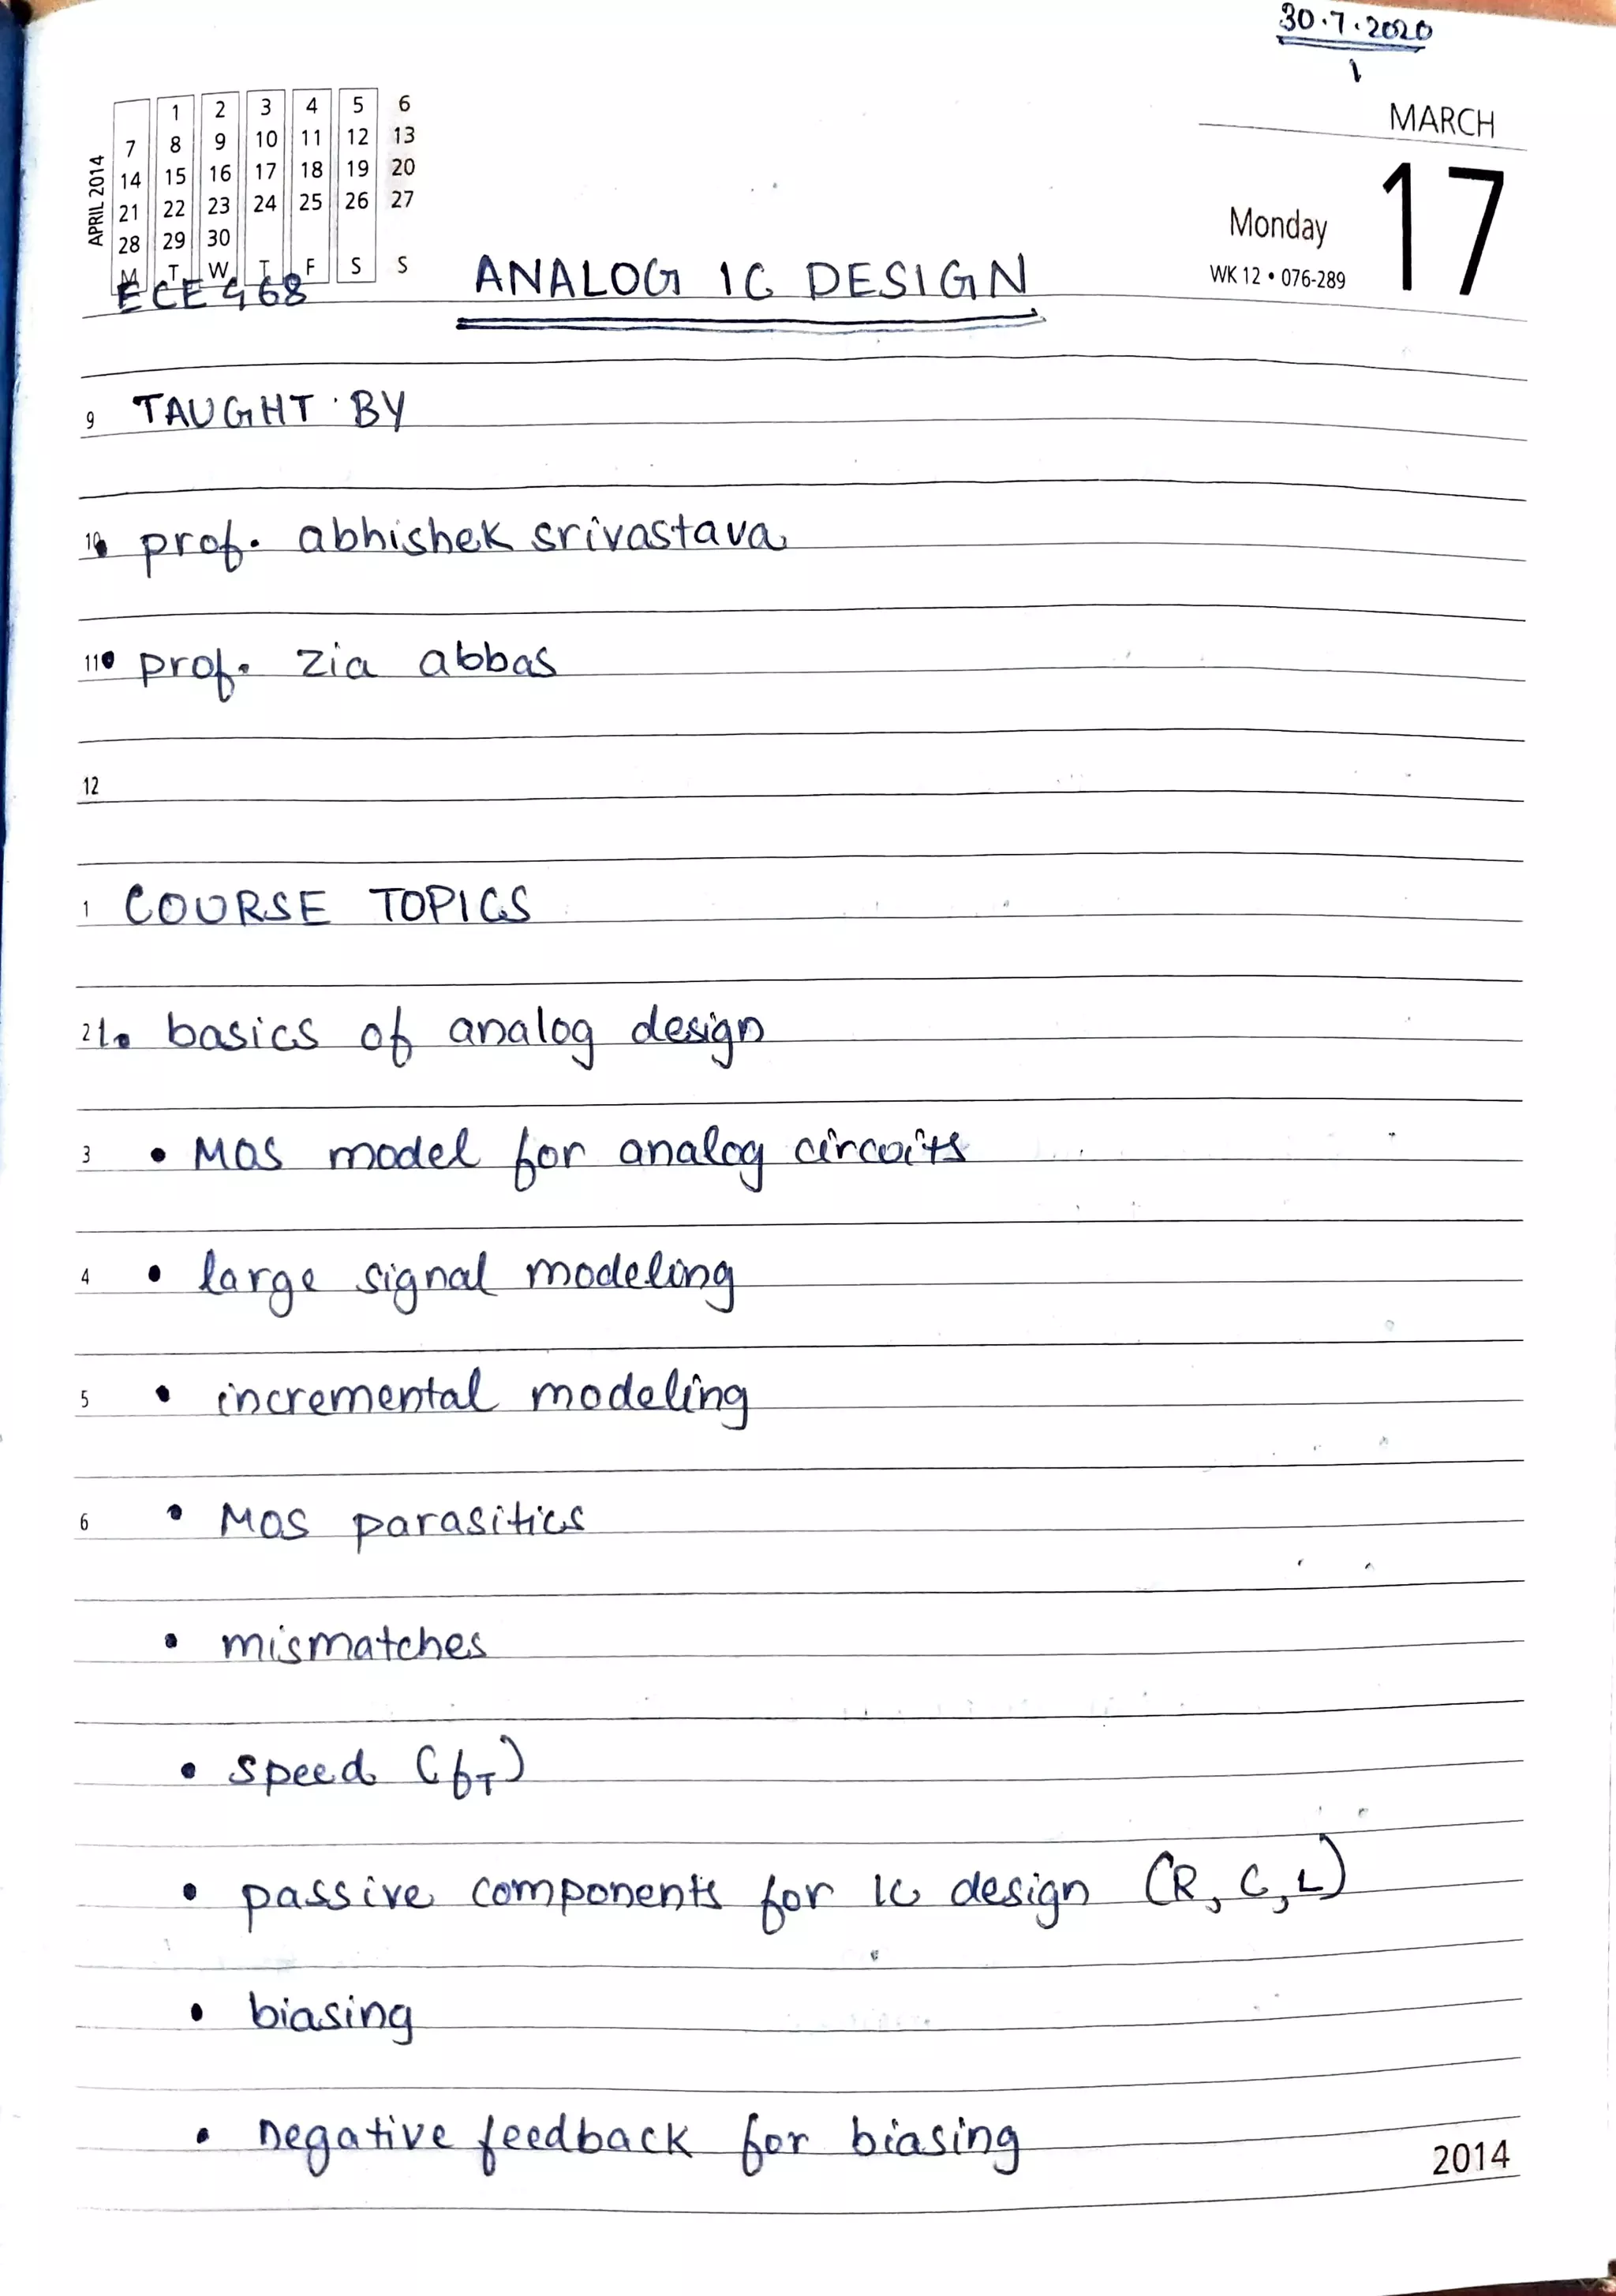 30.7.2020
1
MARCH
17
Monday
WK 12 • 076-289
APRIL 2014
1 2 3 4 5 6
7 8 9 10 11 12 13
14 15 16 17 18 19 20
21 22 23 24 25 26 27
28 29 30
M T W T F S S
ECE 468
ANALOG IC DESIGN
9 TAUGHT BY
10 • prof. abhishek srivastava
11 • prof. zia abbas
12
1 COURSE TOPICS
2 1. basics of analog design
3 • MOS model for analog circuits
4 • large signal modeling
5 • incremental modeling
6 • MOS parasitics
• mismatches
• speed (fT)
• passive components for IC design (R, C, L)
• biasing
• negative feedback for biasing
2014